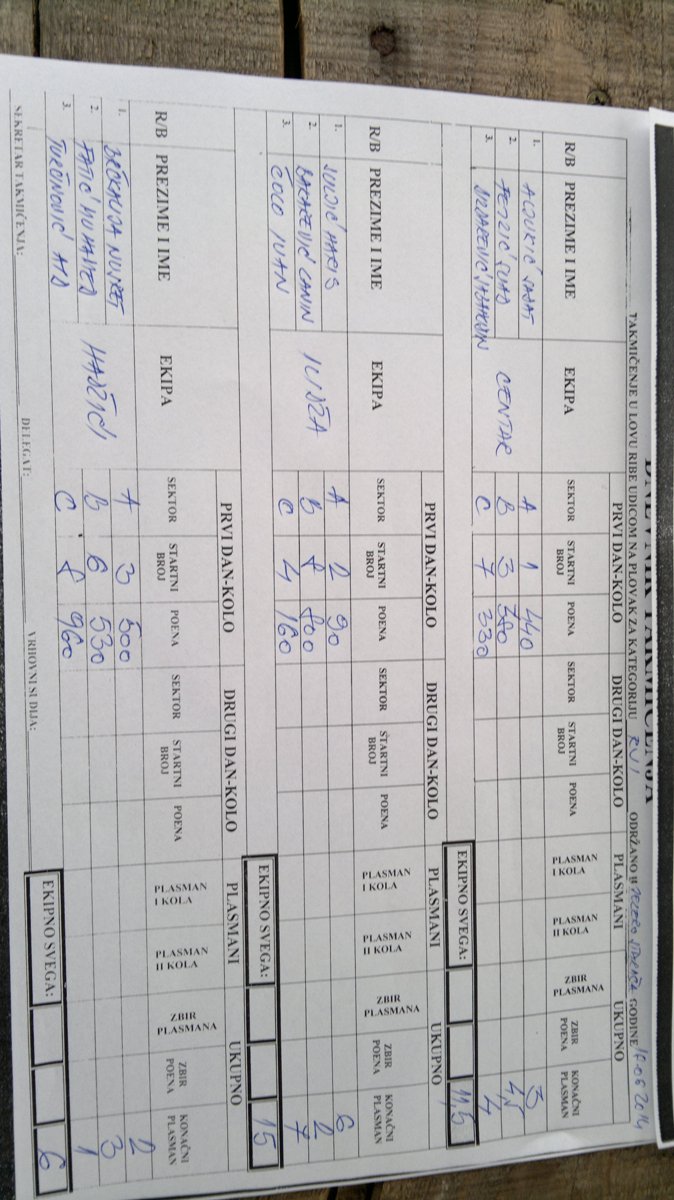 DNEVNIK TAKMIČENJA
TAKMIČENJE U LOVU RIBE UDICOM NA PLOVAK ZA KATEGORIJU RVI ODRŽANO U JEZERO GODINE 17.06.2014
R/B PREZIME I IME EKIPA PRVI DAN-KOLO DRUGI DAN-KOLO PLASMANI UKUPNO
SEKTOR STARTNI BROJ POENA SEKTOR STARTNI BROJ POENA PLASMAN I KOLA PLASMAN II KOLA ZBIR PLASMANA ZBIR POENA KONAČNI PLASMAN
1. A 1 440 3
2. FUAD CENTAR B 3 380 4,5
3. C 7 330 4
EKIPNO SVEGA: 11,5
R/B PREZIME I IME EKIPA PRVI DAN-KOLO DRUGI DAN-KOLO PLASMANI UKUPNO
SEKTOR STARTNI BROJ POENA SEKTOR STARTNI BROJ POENA PLASMAN I KOLA PLASMAN II KOLA ZBIR PLASMANA ZBIR POENA KONAČNI PLASMAN
1. HARIS A 2 90 6
2. ILIDŽA B 8 800 2
3. ČOLO IVAN C 4 160 7
EKIPNO SVEGA: 15
R/B PREZIME I IME EKIPA PRVI DAN-KOLO DRUGI DAN-KOLO PLASMANI UKUPNO
SEKTOR STARTNI BROJ POENA SEKTOR STARTNI BROJ POENA PLASMAN I KOLA PLASMAN II KOLA ZBIR PLASMANA ZBIR POENA KONAČNI PLASMAN
1. NUSRET A 3 500 2
2. FATIĆ MUHAMED HADŽIĆI B 6 530 3
3. TURČINOVIĆ C 8 960 1
EKIPNO SVEGA: 6
SEKRETAR TAKMIČENJA: DELEGAT: VRHOVNI SUDIJA: